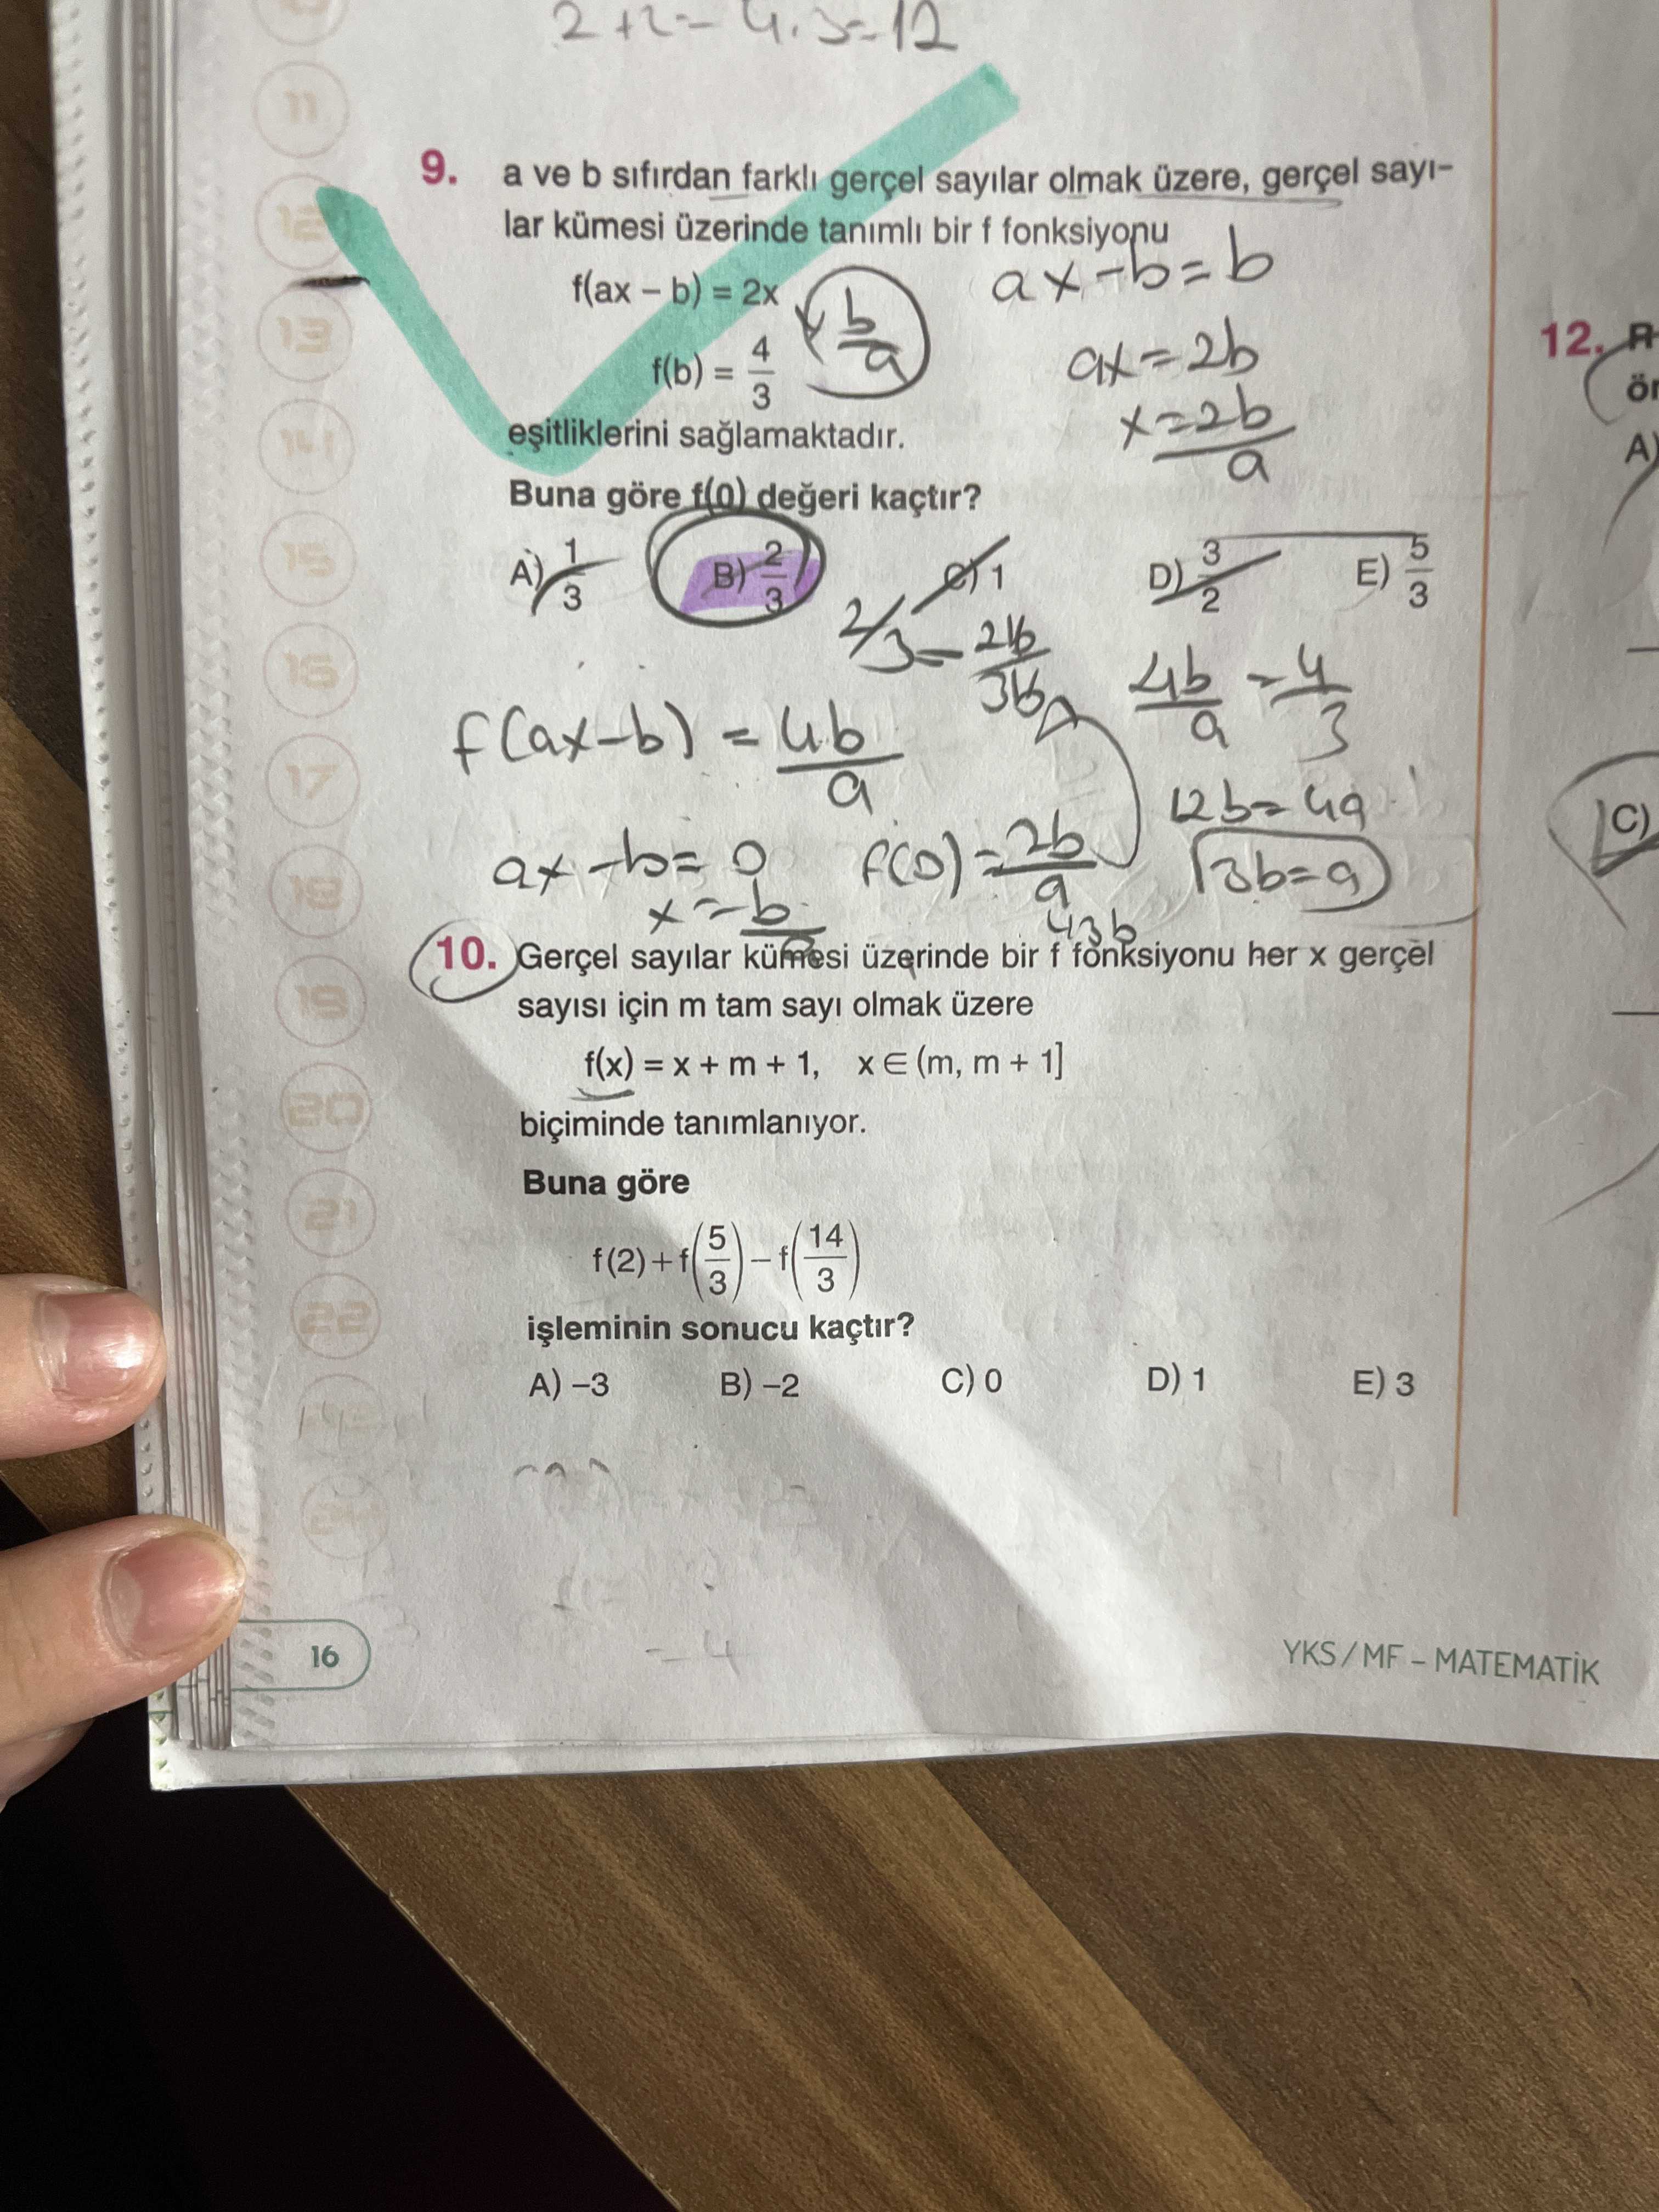 2+2= 4.3=12
11
12
13
14
15
16
17
18
19
20
21
22
9. a ve b sıfırdan farklı gerçel sayılar olmak üzere, gerçel sayı-
lar kümesi üzerinde tanımlı bir f fonksiyonu
f(ax – b) = 2x
b/a
f(b) = 4/3
ax-b=b
ax=2b
x=2b/a
eşitliklerini sağlamaktadır.
Buna göre f(0) değeri kaçtır?
A) 1/3 B) 2/3 C) 1 D) 3/2 E) 5/3
2/3=2b/3b
4b/a=4/3
f(ax-b) = 4b/a
12b=4a
3b=a
ax-b=0 f(0)=2b/a
x=b
3b
10. Gerçel sayılar kümesi üzerinde bir f fonksiyonu her x gerçel
sayısı için m tam sayı olmak üzere
f(x) = x + m + 1, x ∈ (m, m + 1]
biçiminde tanımlanıyor.
Buna göre
f(2)+f(5/3)–f(14/3)
işleminin sonucu kaçtır?
A) –3 B) –2 C) 0 D) 1 E) 3
=4
16
YKS/MF – MATEMATİK
12.
A)
C)